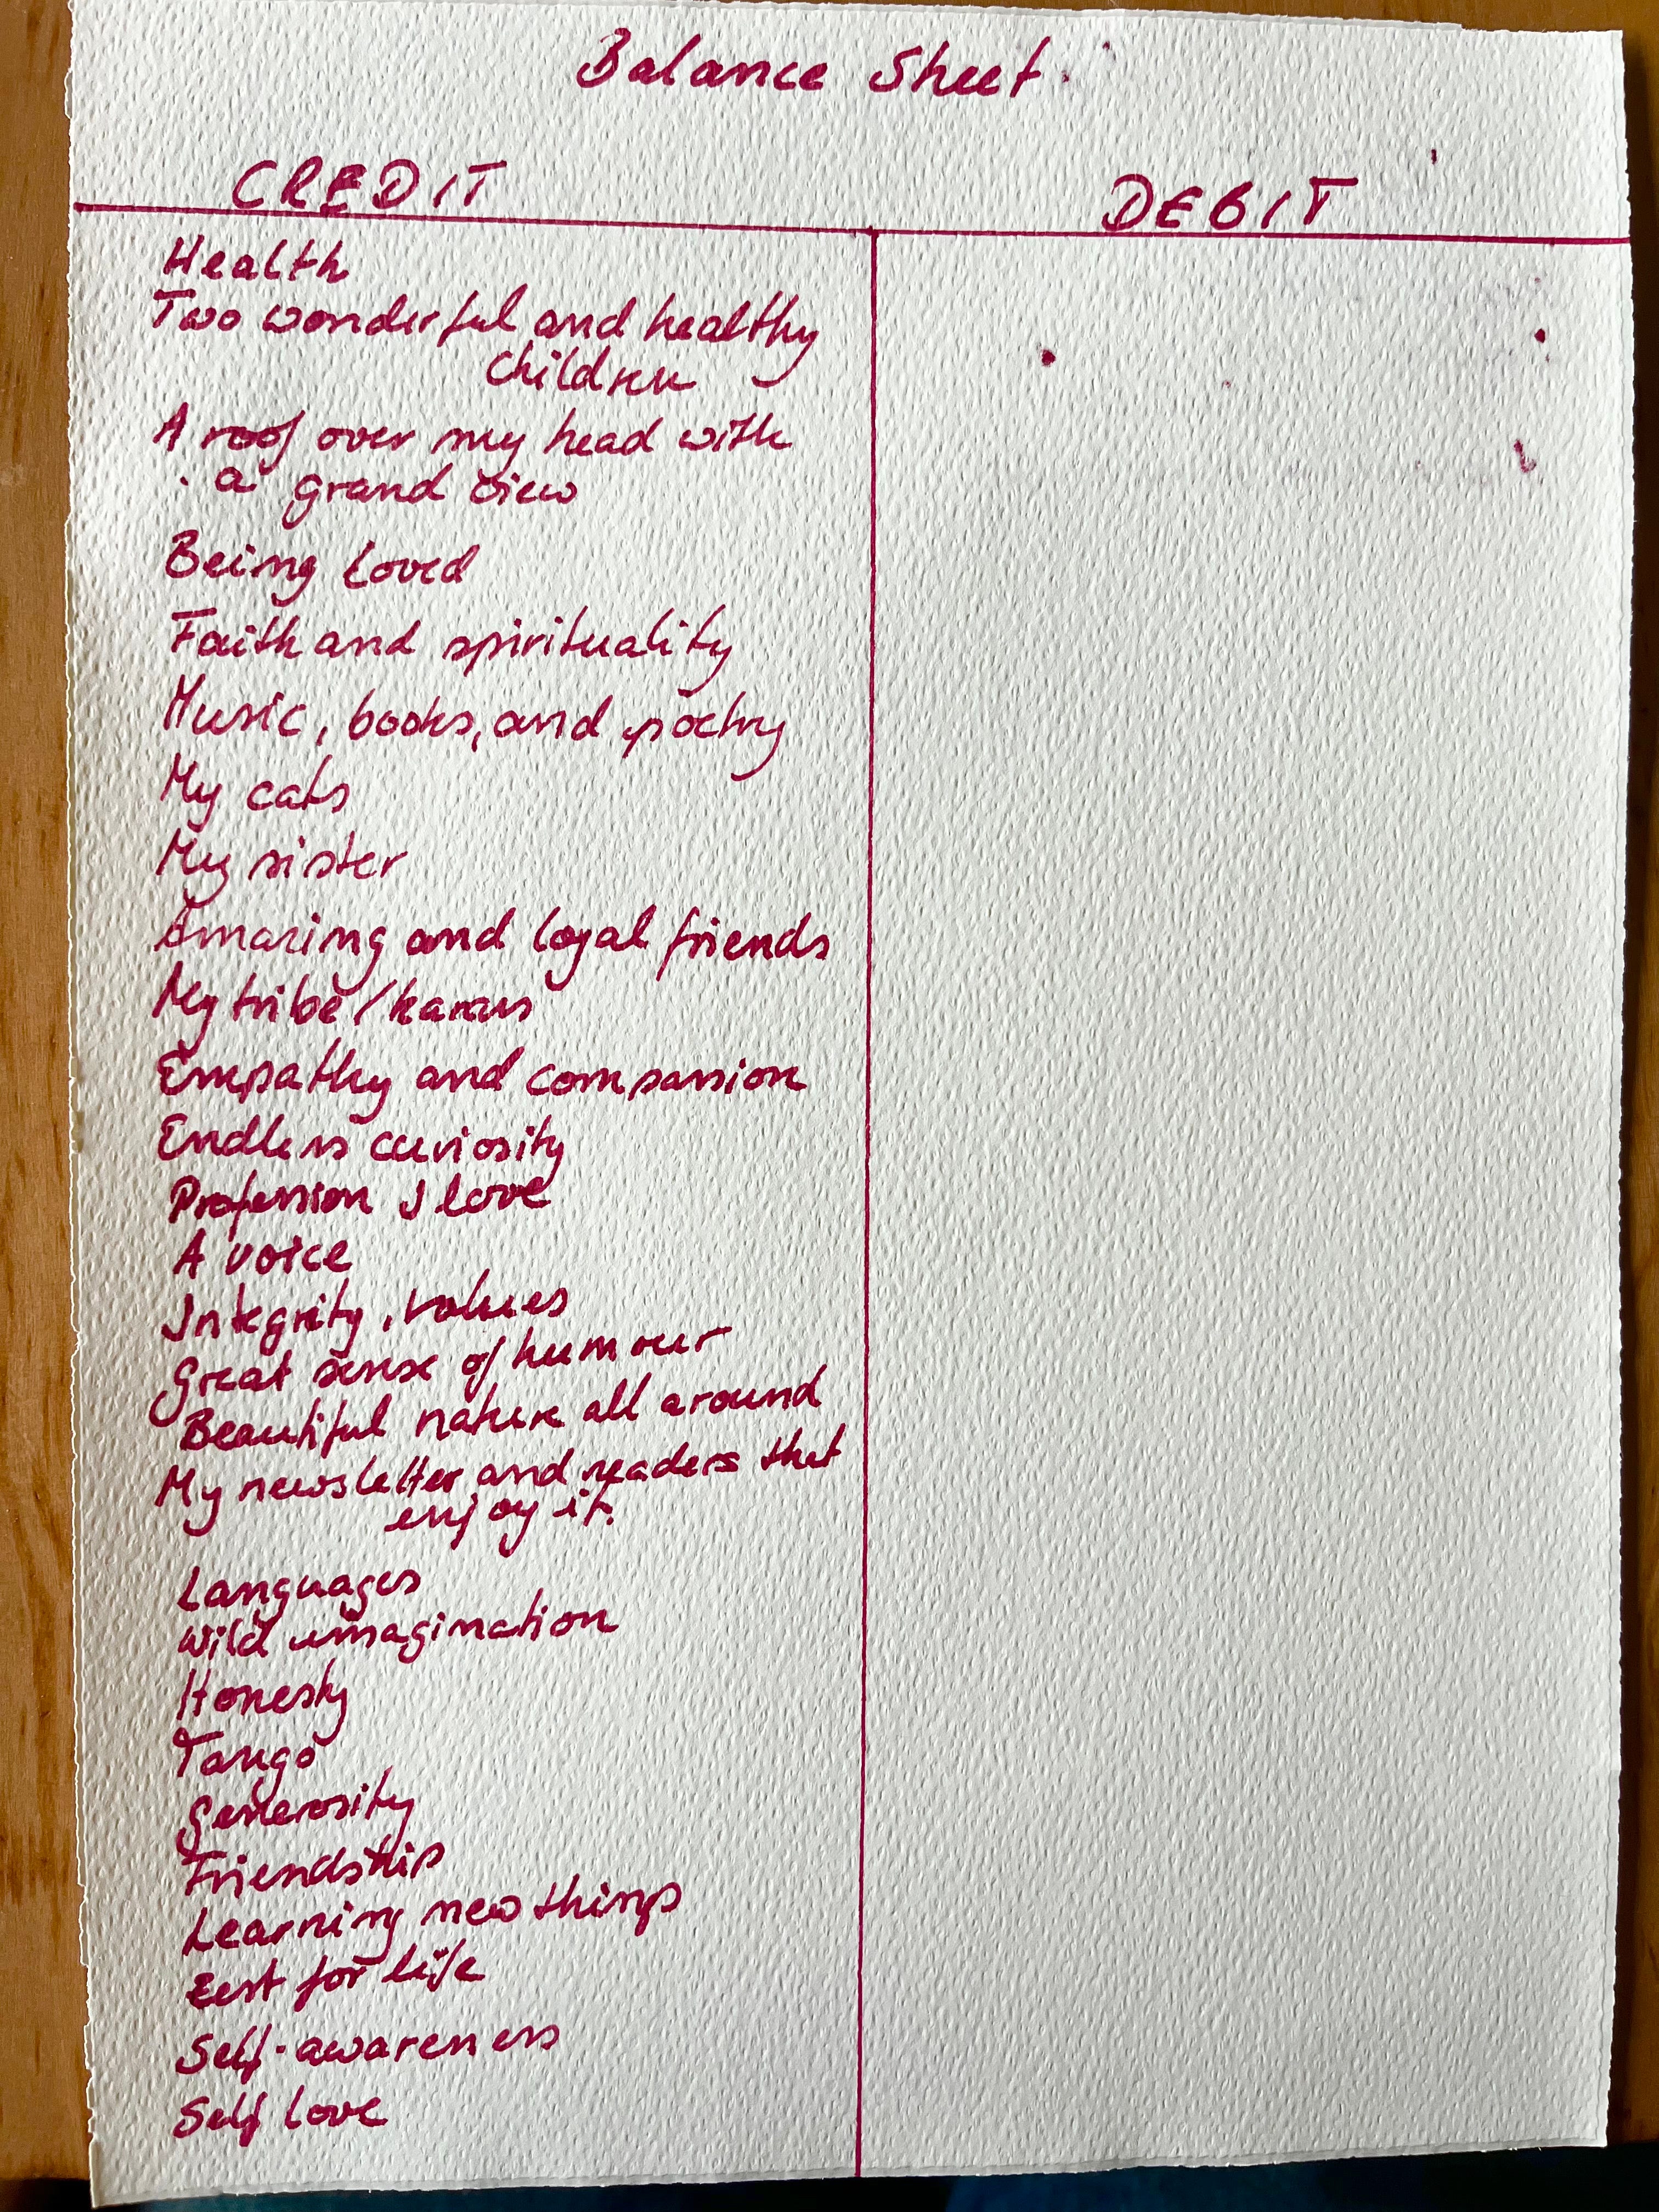 Balance Sheet.
CREDIT
DEBIT
Health
Two wonderful and healthy
children
A roof over my head with
a grand view
Being loved
Faith and spirituality
Music, books, and poetry
My cats
My sister
Amazing and loyal friends
My tribe /
Empathy and compassion
Endless curiosity
Profession I love
A voice
Integrity, values
Great sense of humour
Beautiful nature all around
My newsletter and readers that
enjoy it.
Languages
Wild imagination
Honesty
Tango
Generosity
Friendship
Learning new things
Zest for life
Self-awareness
Self love